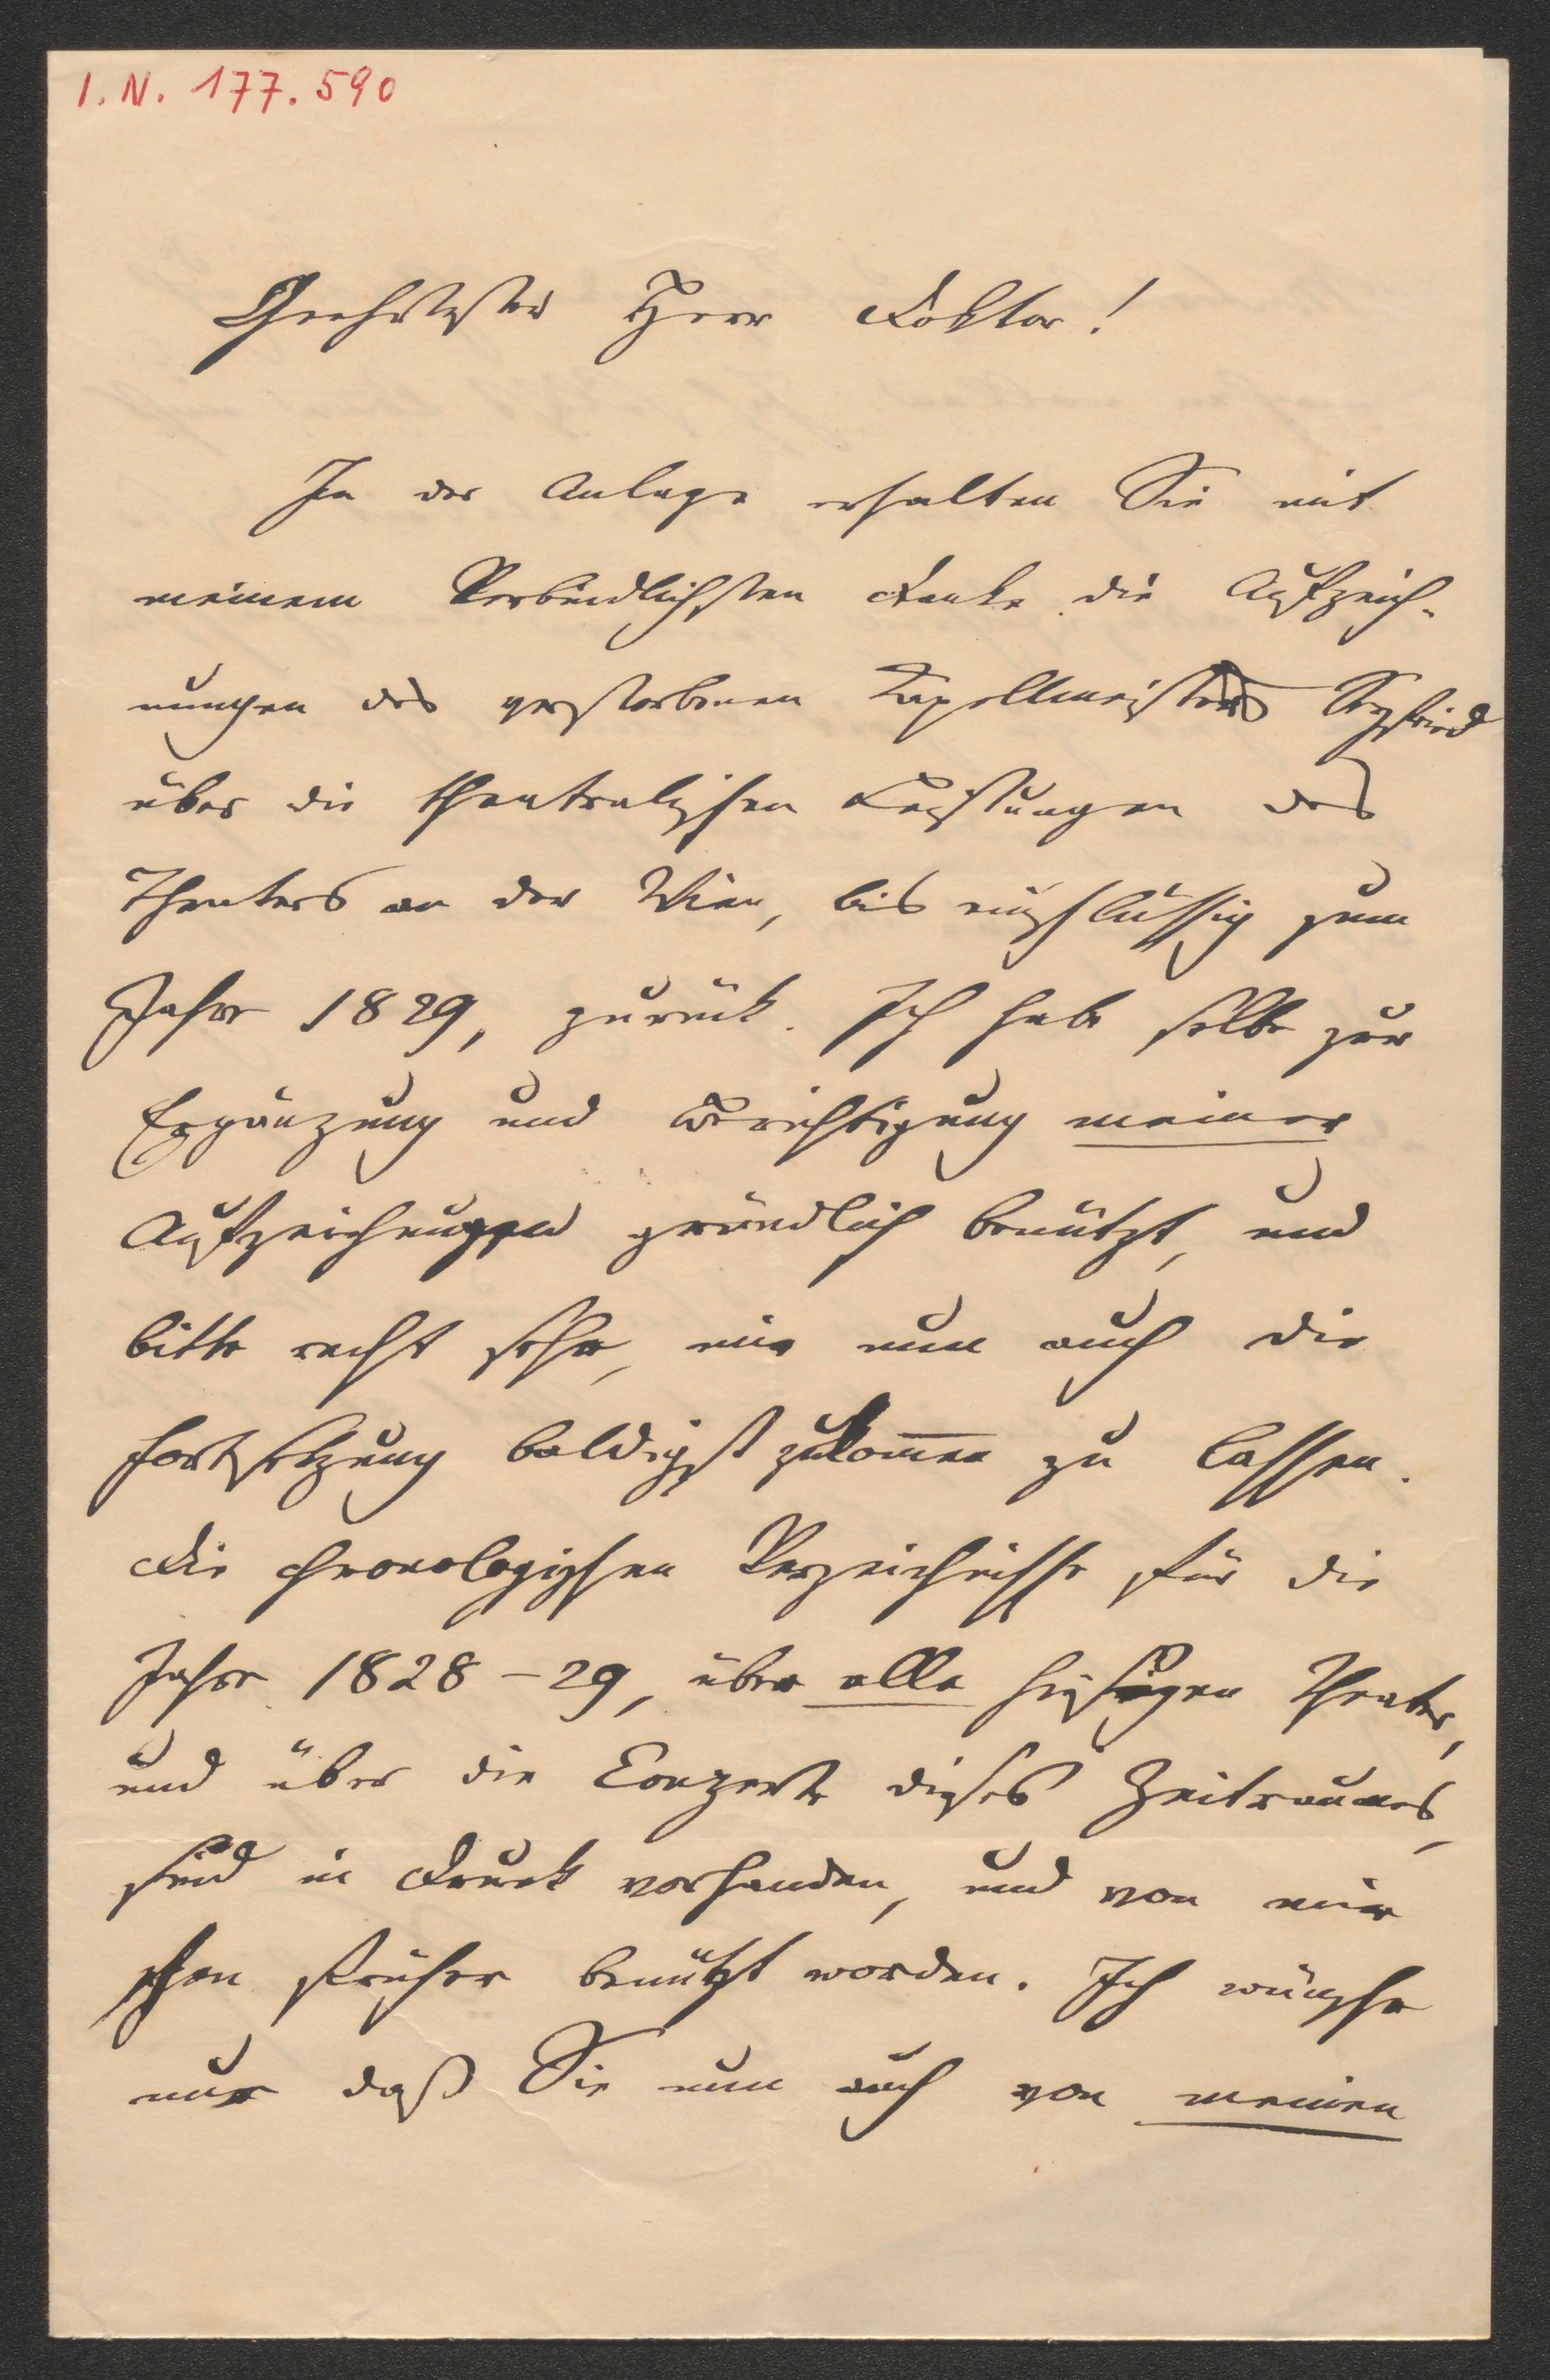 I. N. 177.590
Geehrtester Herr Doktor!
In der Anlage erhalten Sie mit
meinem Verbindlichsten Danke die Aufzeich-
nungen des verstorbenen Kapellmeisters Seyfried
über die theatralischen Leistungen des
Theaters an der Wien, bis einschlüssig zum
Jahre 1829, zurück. Ich habe selbe zur
Ergänzung und Berichtigung meiner
Aufzeichnungen gründlich benützt, und
bitte recht sehr, mir nun auch die
Fortsetzung baldigst zukommen zu lassen.
Die chronologischen Verzeichnisse für die
Jahre 1828-29, über alle hiesigen Theater,
und über die Conzerte dieses Zeitraumes,
sind in Druck vorhanden, und von mir
schon früher benützt worden. Ich wünsche
nur daß Sie nun auch von meinen